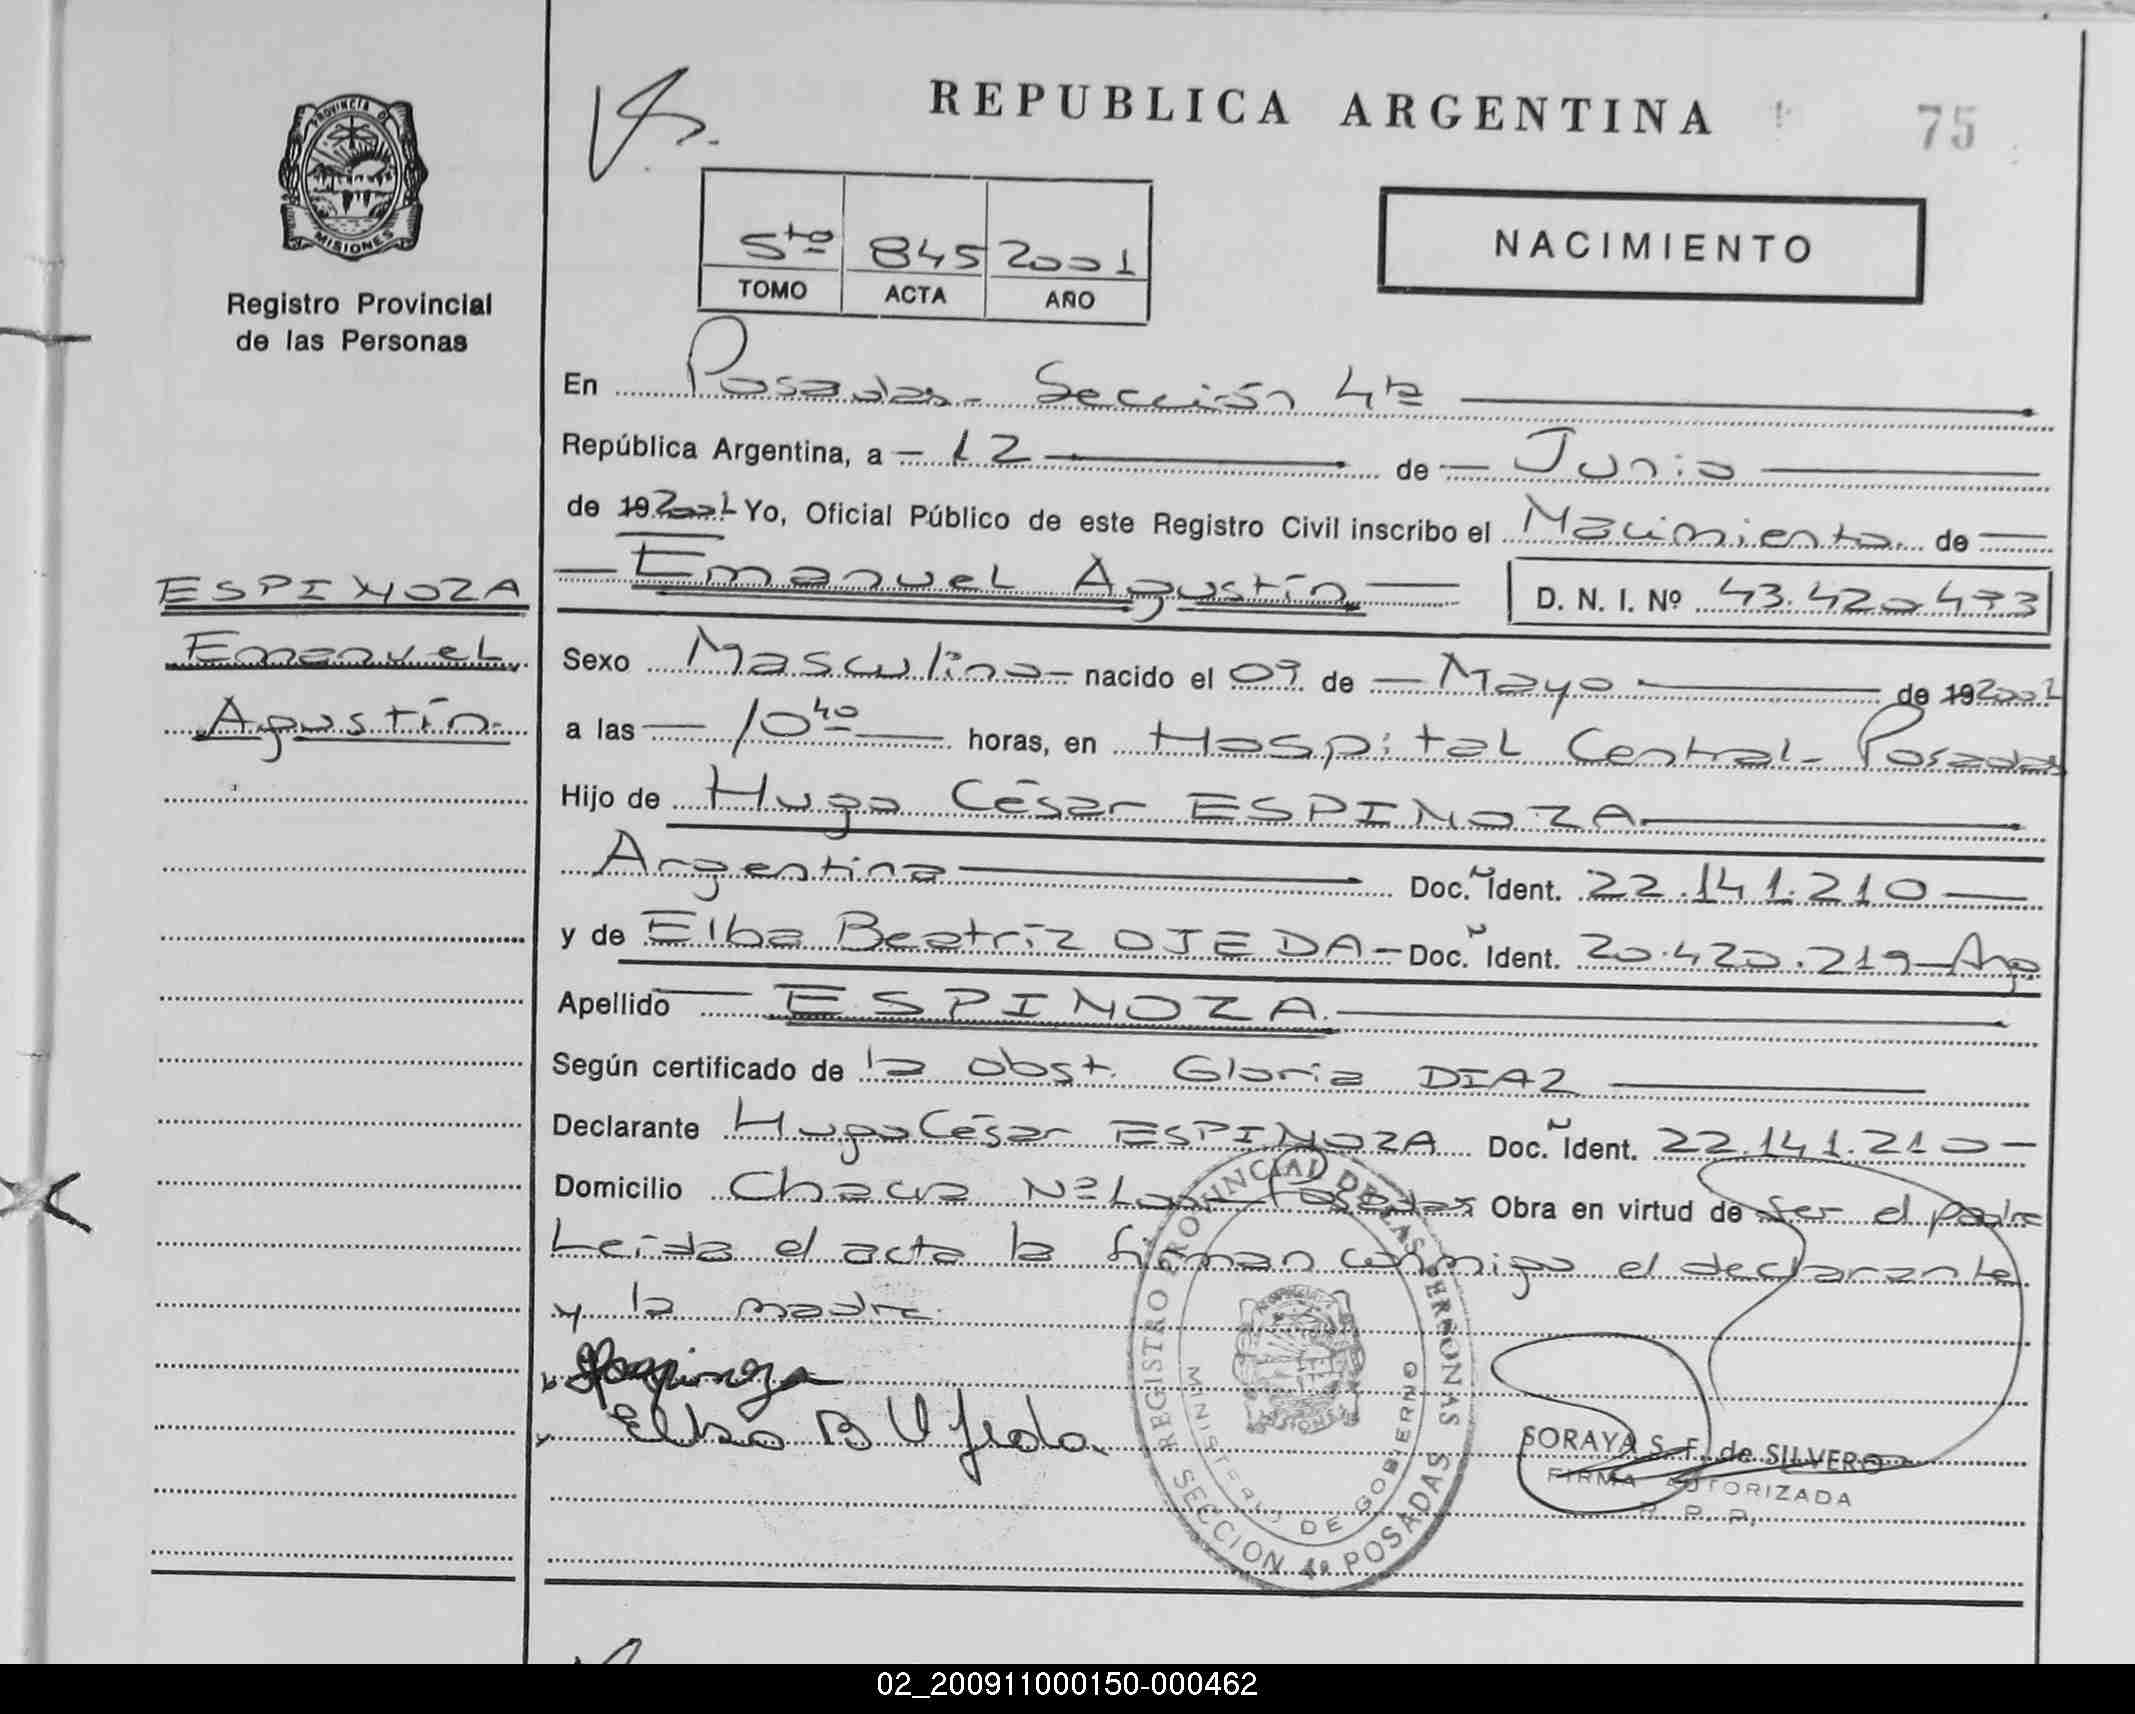 REPUBLICA ARGENTINA
75
PROVINCIA DE
MISIONES
Registro Provincial
de las Personas
5to 845 2001
TOMO ACTA AÑO
NACIMIENTO
En Posadas - Sección 4ta
República Argentina, a - 12 de - Junio
de 19 2001 Yo, Oficial Público de este Registro Civil inscribo el Nacimiento de
Emanuel Agustín D. N. I. Nº 43.420.473
ESPINOZA
Emanuel
Agustín
Sexo Masculino - nacido el 09 de - Mayo de 19 2001
a las - 10 40 horas, en Hospital Central - Posadas
Hijo de Hugo César ESPINOZA
Argentina Doc. Ident. 22.141.210
y de Elba Beatríz OJEDA - Doc. Ident. 20.420.219 - Arg
Apellido ESPINOZA
Según certificado de la obst. Gloria DIAZ
Declarante Hugo César ESPINOZA Doc. Ident. 22.141.210 -
Domicilio Chacra Nº Posadas Obra en virtud de ser el padre
Leída el acta la firman conmigo el declarante
y la madre.
Espinoza
Elba B Ojeda
REGISTRO PROVINCIAL DE LAS PERSONAS
MINISTERIO DE GOBIERNO
SECCION 4a POSADAS
SORAYA S. F. de SILVERO
FIRMA AUTORIZADA
R. P. P.
02_200911000150-000462